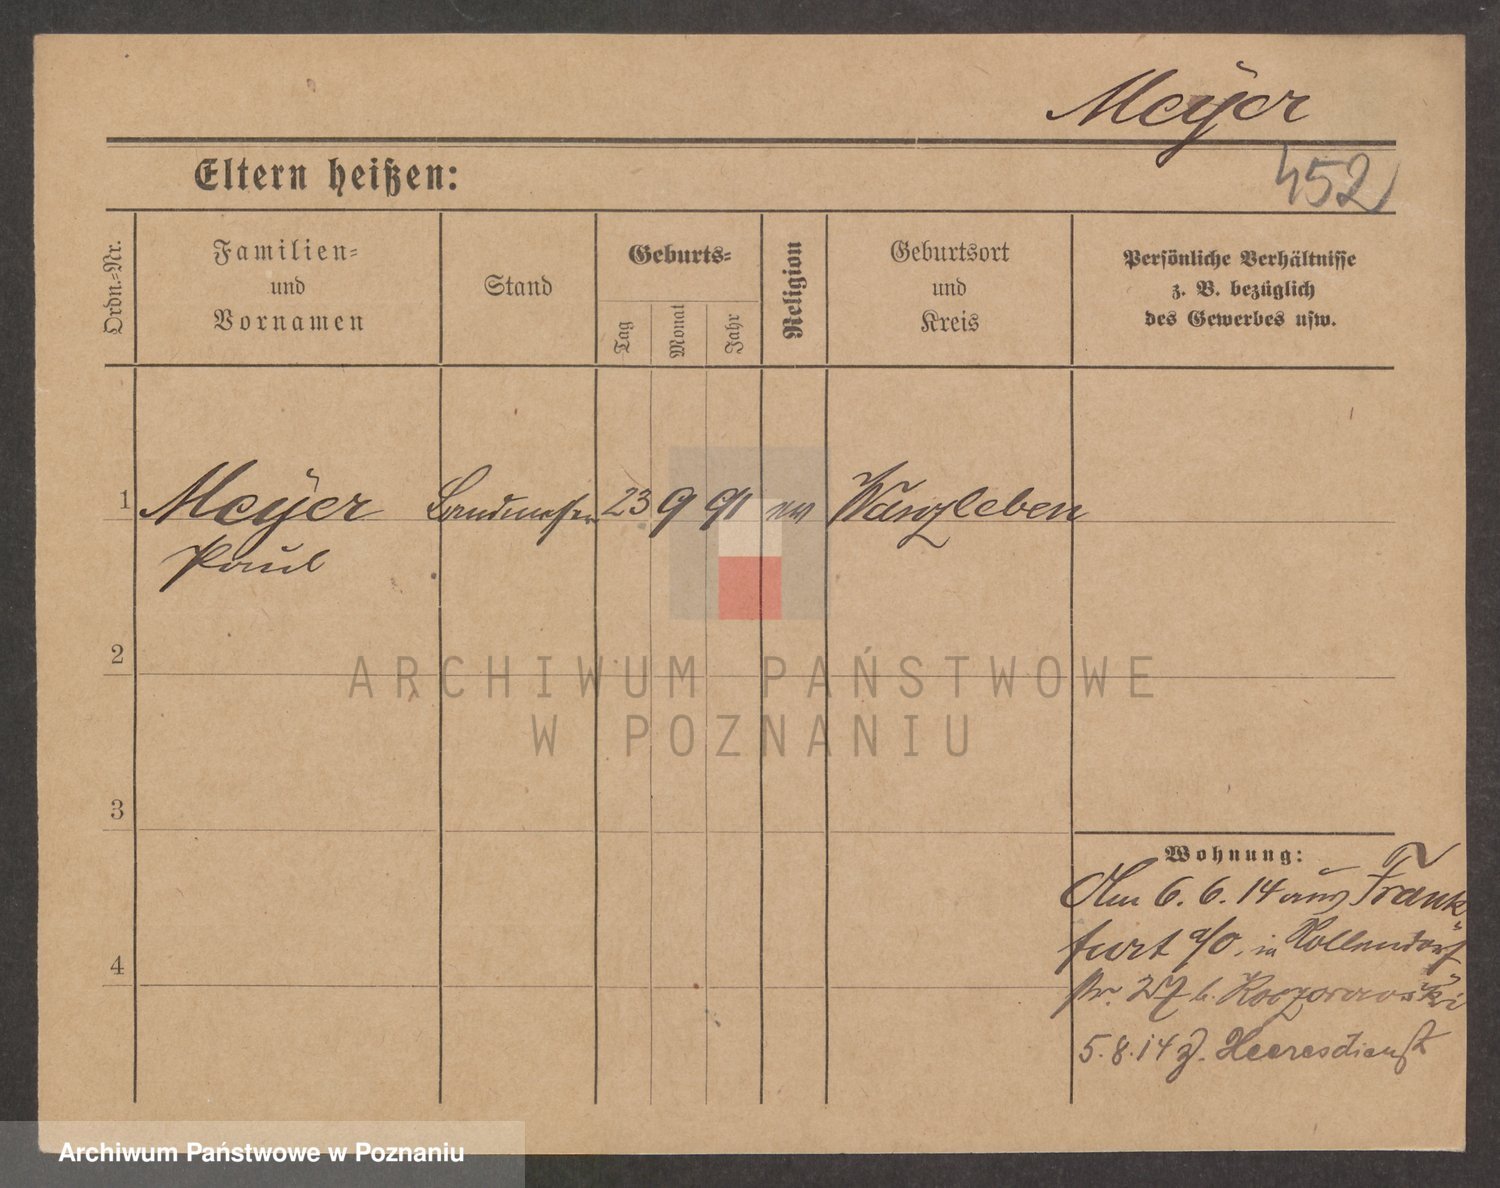 Meÿer
452
Eltern heißen:
Ordn.=Nr.
Familien=
und
Vornamen
Stand
Geburts=
Tag
Monat
Jahr
Religion
Geburtsort
und
Kreis
Persönliche Verhältnisse
z. B. bezüglich
des Gewerbes usw.
1 Meÿer Landmesser 23 9 91 ev Wanzleben
Paul
2
3
4
Wohnung:
Am 6. 6. 14 aus Frank
furt a/O. in Kollendorf
str. 27 b.
5. 8. 14 z. Heeresdienst
ARCHIWUM PAŃSTWOWE
W POZNANIU
Archiwum Państwowe w Poznaniu